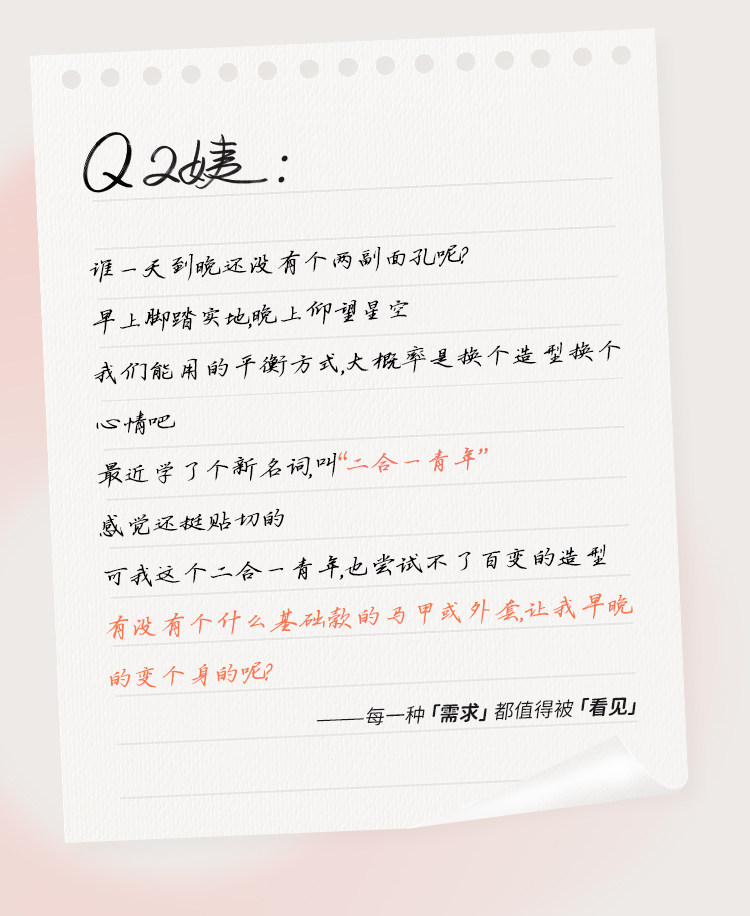 Q2姨：
谁一天到晚还没有个两副面孔呢?
早上脚踏实地,晚上仰望星空
我们能用的平衡方式,大概率是换个造型换个
心情吧
最近学了个新名词,叫“二合一青年”
感觉还挺贴切的
可我这个二合一青年,也尝试不了百变的造型
有没有个什么基础款的马甲或外套,让我早晚
的变个身的呢?
——每一种「需求」都值得被「看见」